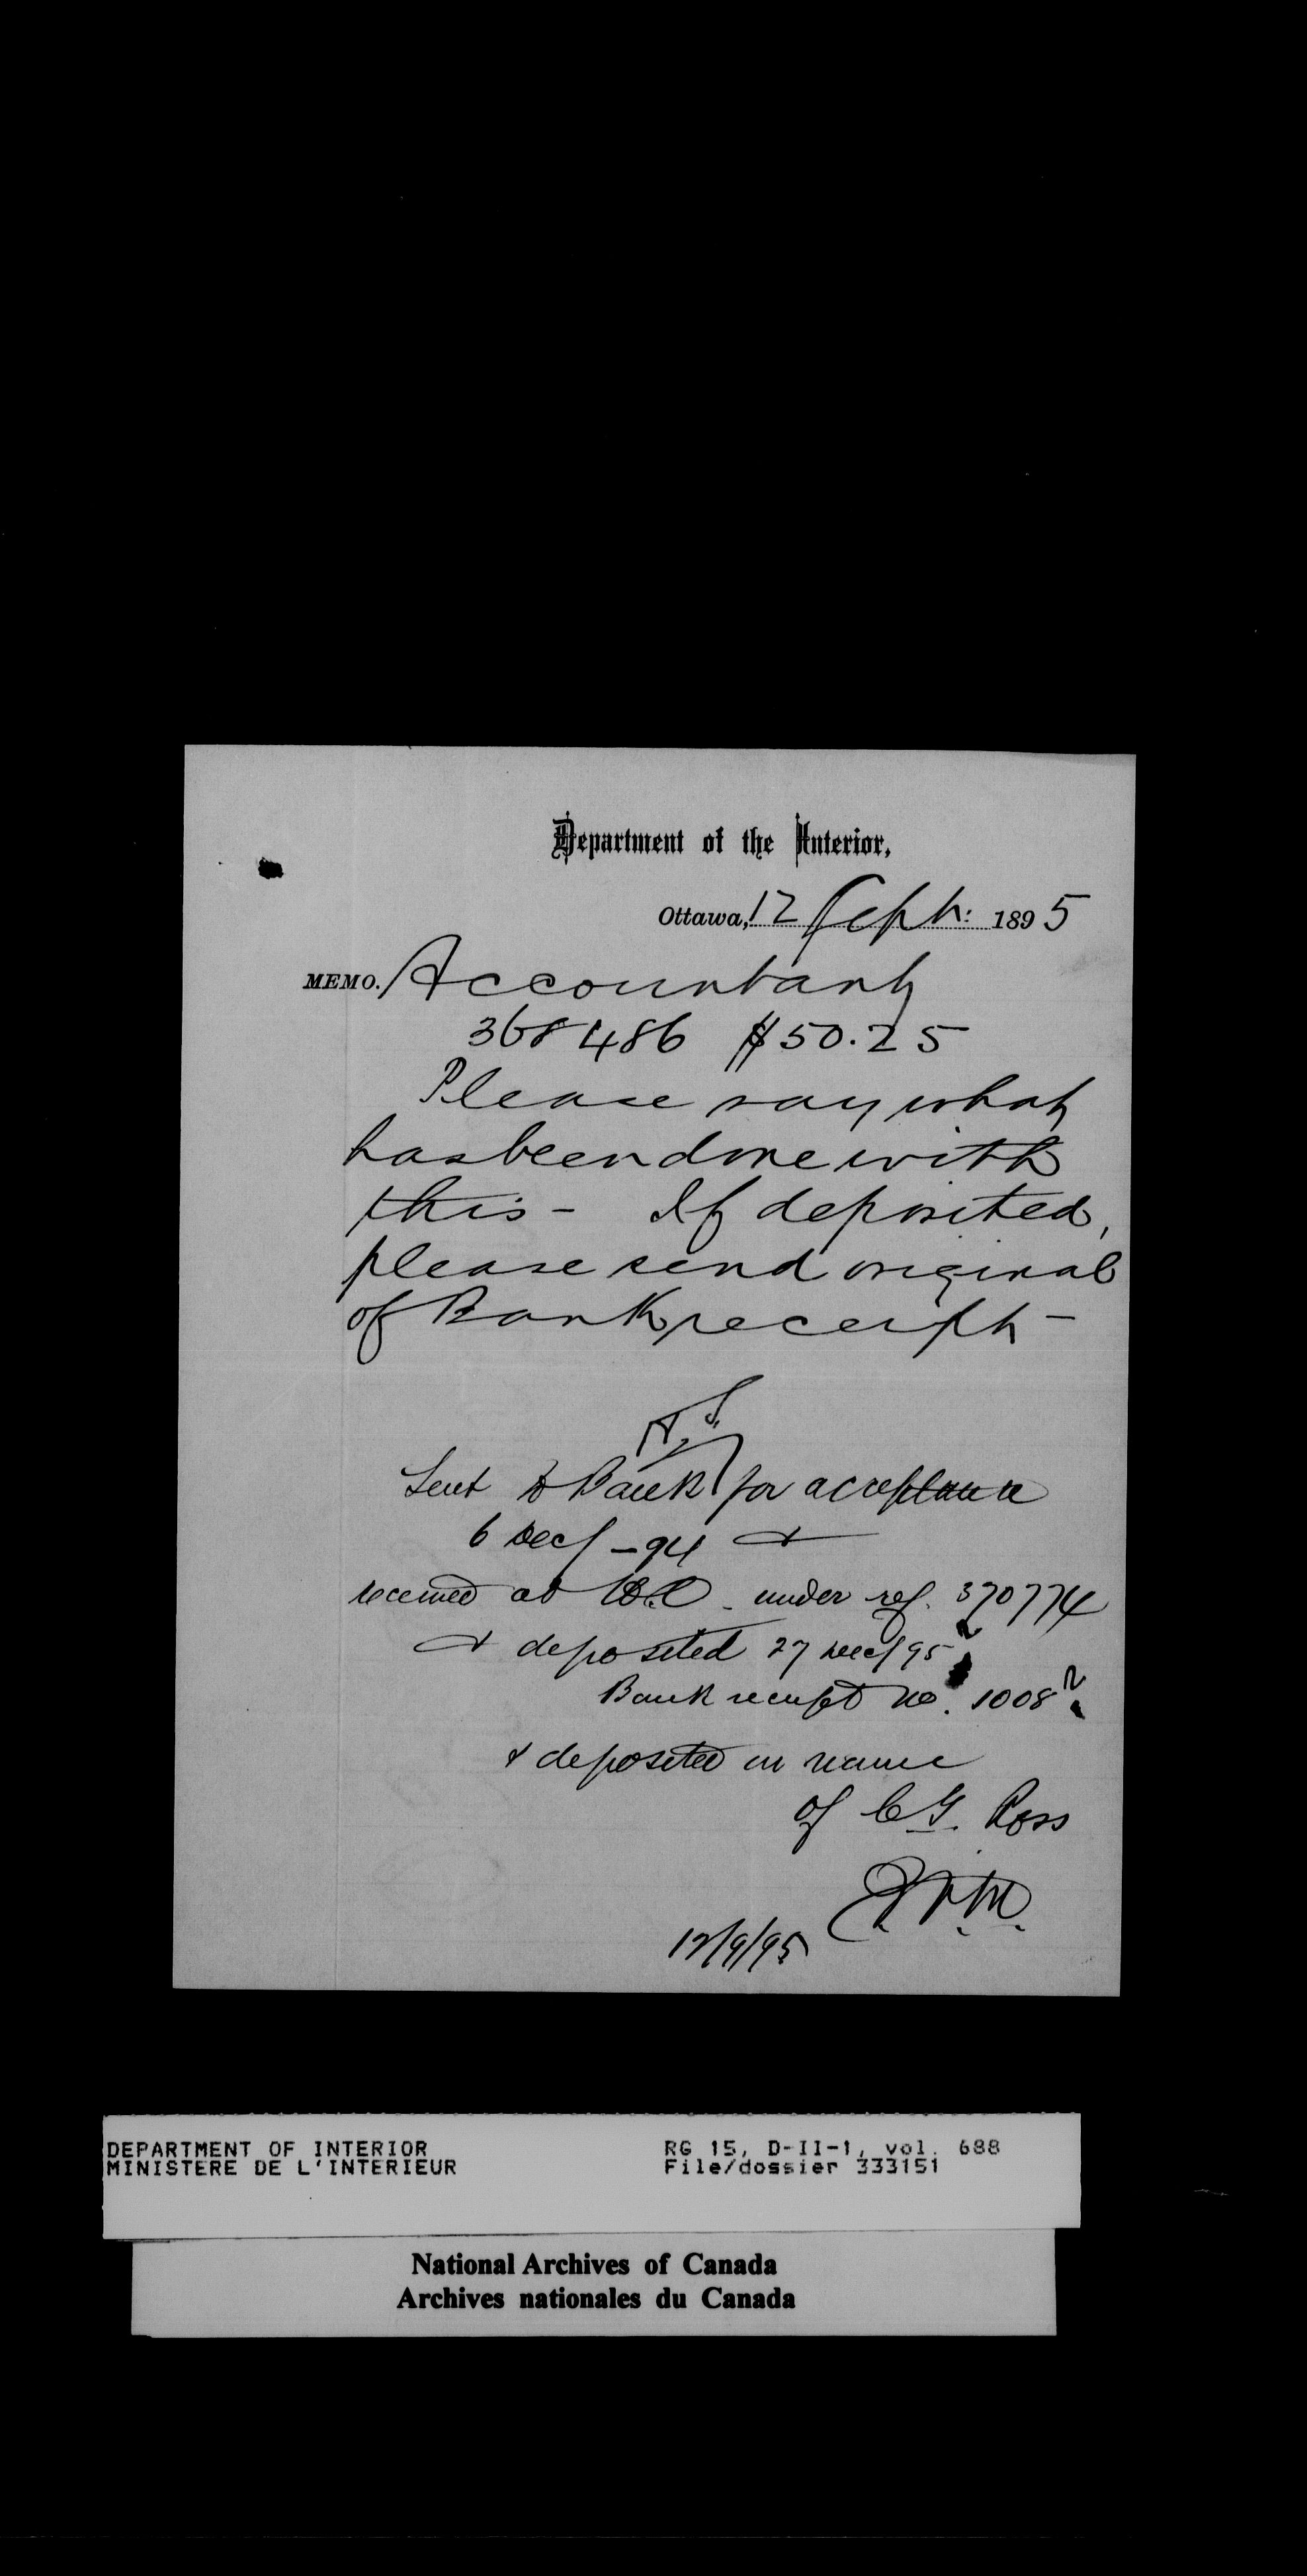 Department of the Interior,
Ottawa, 12 Sept: 1895
MEMO. Accountant
368486 $50.25
Please say what
has been done with
this - If deposited,
please send original
of Bank receipt -
Sent to Bank for acceptance
6 Dec/ - 94 &
received at under ref. 370774
& deposited 27 Dec/95
Bank receipt No. 1008
& deposited in name
of C.G. Ross
12/9/95
DEPARTMENT OF INTERIOR RG 15, D-II-1, vol. 688
MINISTERE DE L'INTERIEUR File/dossier 333151
National Archives of Canada
Archives nationales du Canada